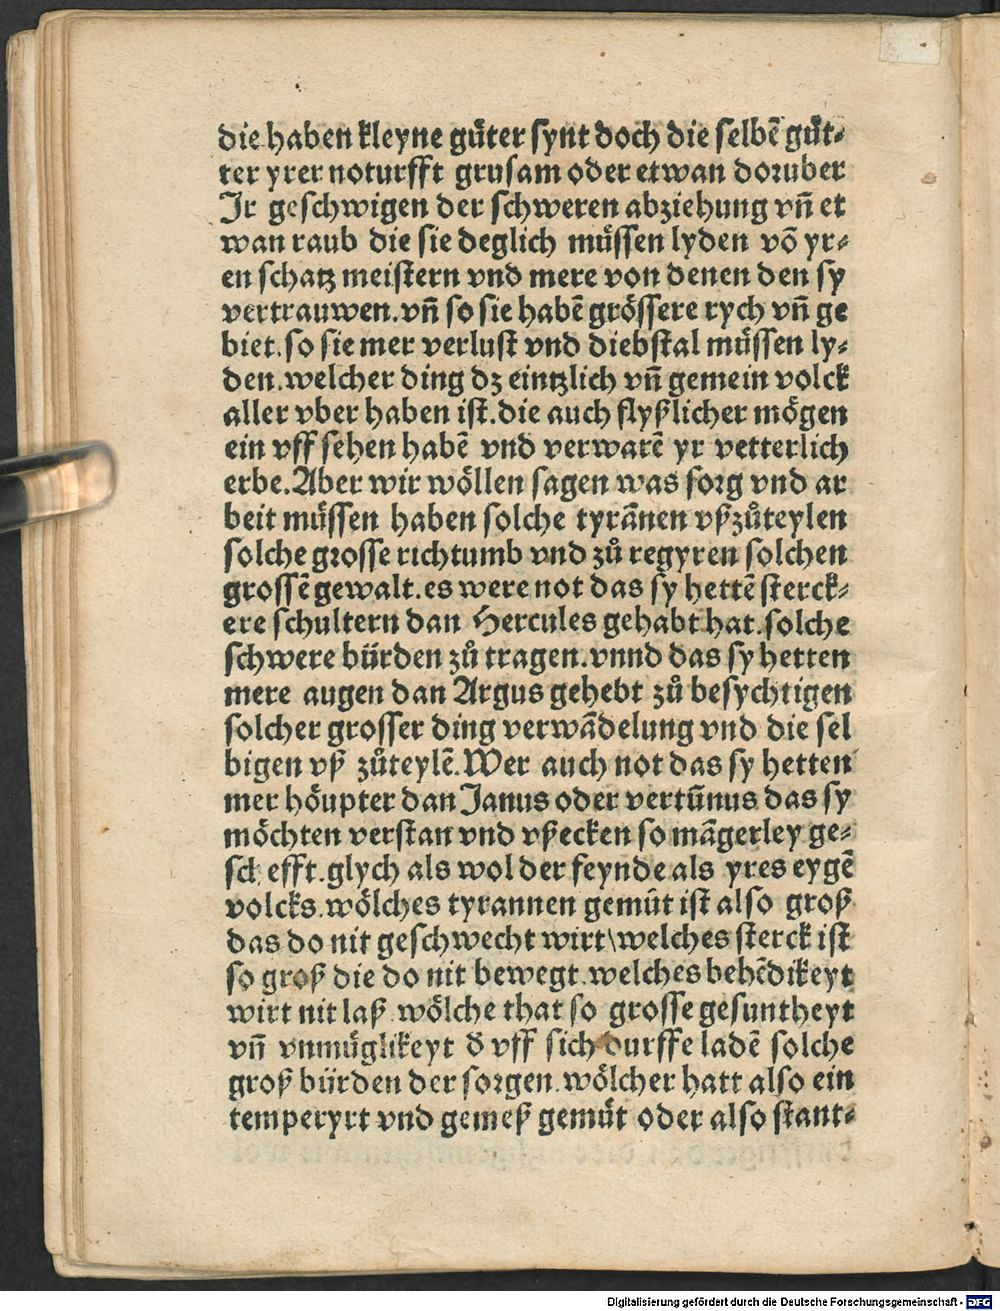 die haben kleyne güter synt doch die selbē güt⸗
ter yrer noturfft grusam oder etwan doruber
Jr geschwigen der schweren abziehung vn̄ et
wan raub die sie deglich müssen lyden vō yr⸗
en schatz meistern vnd mere von denen den sy
vertrauwen. vn̄ so sie habē grössere rych vn̄ ge
biet. so sie mer verlust vnd diebstal müssen ly⸗
den. welcher ding dz eintzlich vn̄ gemein volck
aller vber haben ist. die auch flyßlicher mögen
ein vff sehen habē vnd verwarē yr vetterlich
erbe. Aber wir wöllen sagen was sorg vnd ar
beit müssen haben solche tyrānen vßzůteylen
solche grosse richtumb vnd zů regyren solchen
grossē gewalt. es were not das sy hettē sterck⸗
ere schultern dan Hercules gehabt hat. solche
schwere bürden zů tragen. vnnd das sy hetten
mere augen dan Argus gehebt zů besychtigen
solcher grosser ding verwādelung vnd die sel
bigen vß zůteylē. Wer auch not das sy hetten
mer höupter dan Janus oder vertūnus das sy
möchten verstan vnd vßecken so māgerley ge⸗
schefft. glych als wol der feynde als yres eygē
volcks. wölches tyrannen gemüt ist also groß
das do nit geschwecht wirt\welches sterck ist
so groß die do nit bewegt. welches behēdikeyt
wirt nit laß. wölche that so grosse gesuntheyt
vn̄ vnmüglikeyt d̄ vff sich durffe ladē solche
groß bürden der sorgen. wölcher hatt also ein
temperyrt vnd gemeß gemüt oder also stant⸗
Digitalisierung gefördert durch die Deutsche Forschungsgemeinschaft - DFG